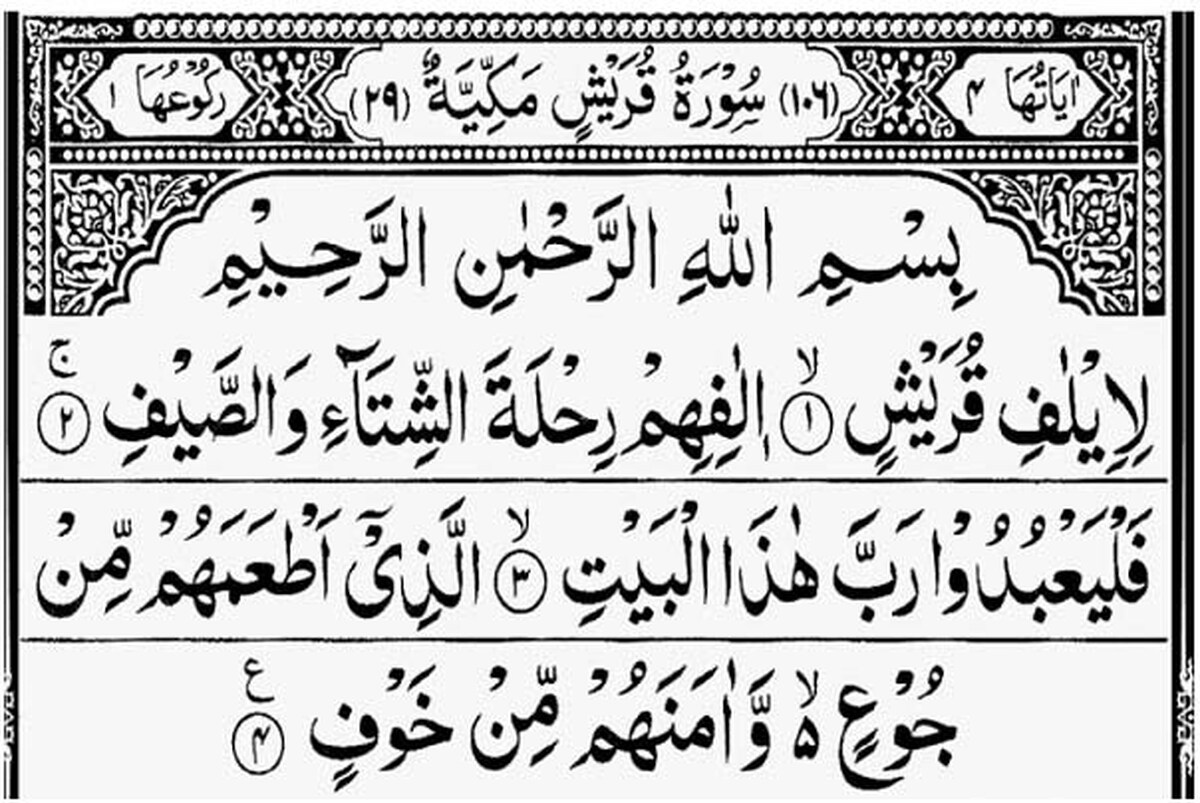 اٰيَاتُهَا ۴ (۱۰۶) سُوْرَةُ قُرَيْشٍ مَكِّيَّةٌ (۲۹) رَكُوْعُهَا ۱
بِسْمِ اللّٰهِ الرَّحْمٰنِ الرَّحِيْمِ
لِاِيْلٰفِ قُرَيْشٍ ۙ﴿۱﴾ اٖلٰفِهِمْ رِحْلَةَ الشِّتَآءِ وَالصَّيْفِ ۚ﴿۲﴾
فَلْيَعْبُدُوْا رَبَّ هٰذَا الْبَيْتِ ۙ﴿۳﴾ الَّذِيْۤ اَطْعَمَهُمْ مِّنْ
جُوْعٍ ۵ۙ وَّاٰمَنَهُمْ مِّنْ خَوْفٍ ﴿۴﴾ ع